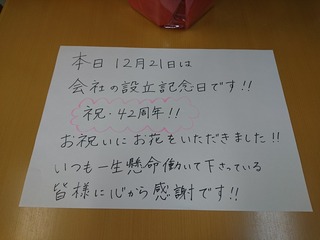 本日 12月21日は
会社の設立記念日です!!
祝・42周年!!
お祝いにお花をいただきました!!
いつも一生懸命働いて下さっている
皆様に心から感謝です!!